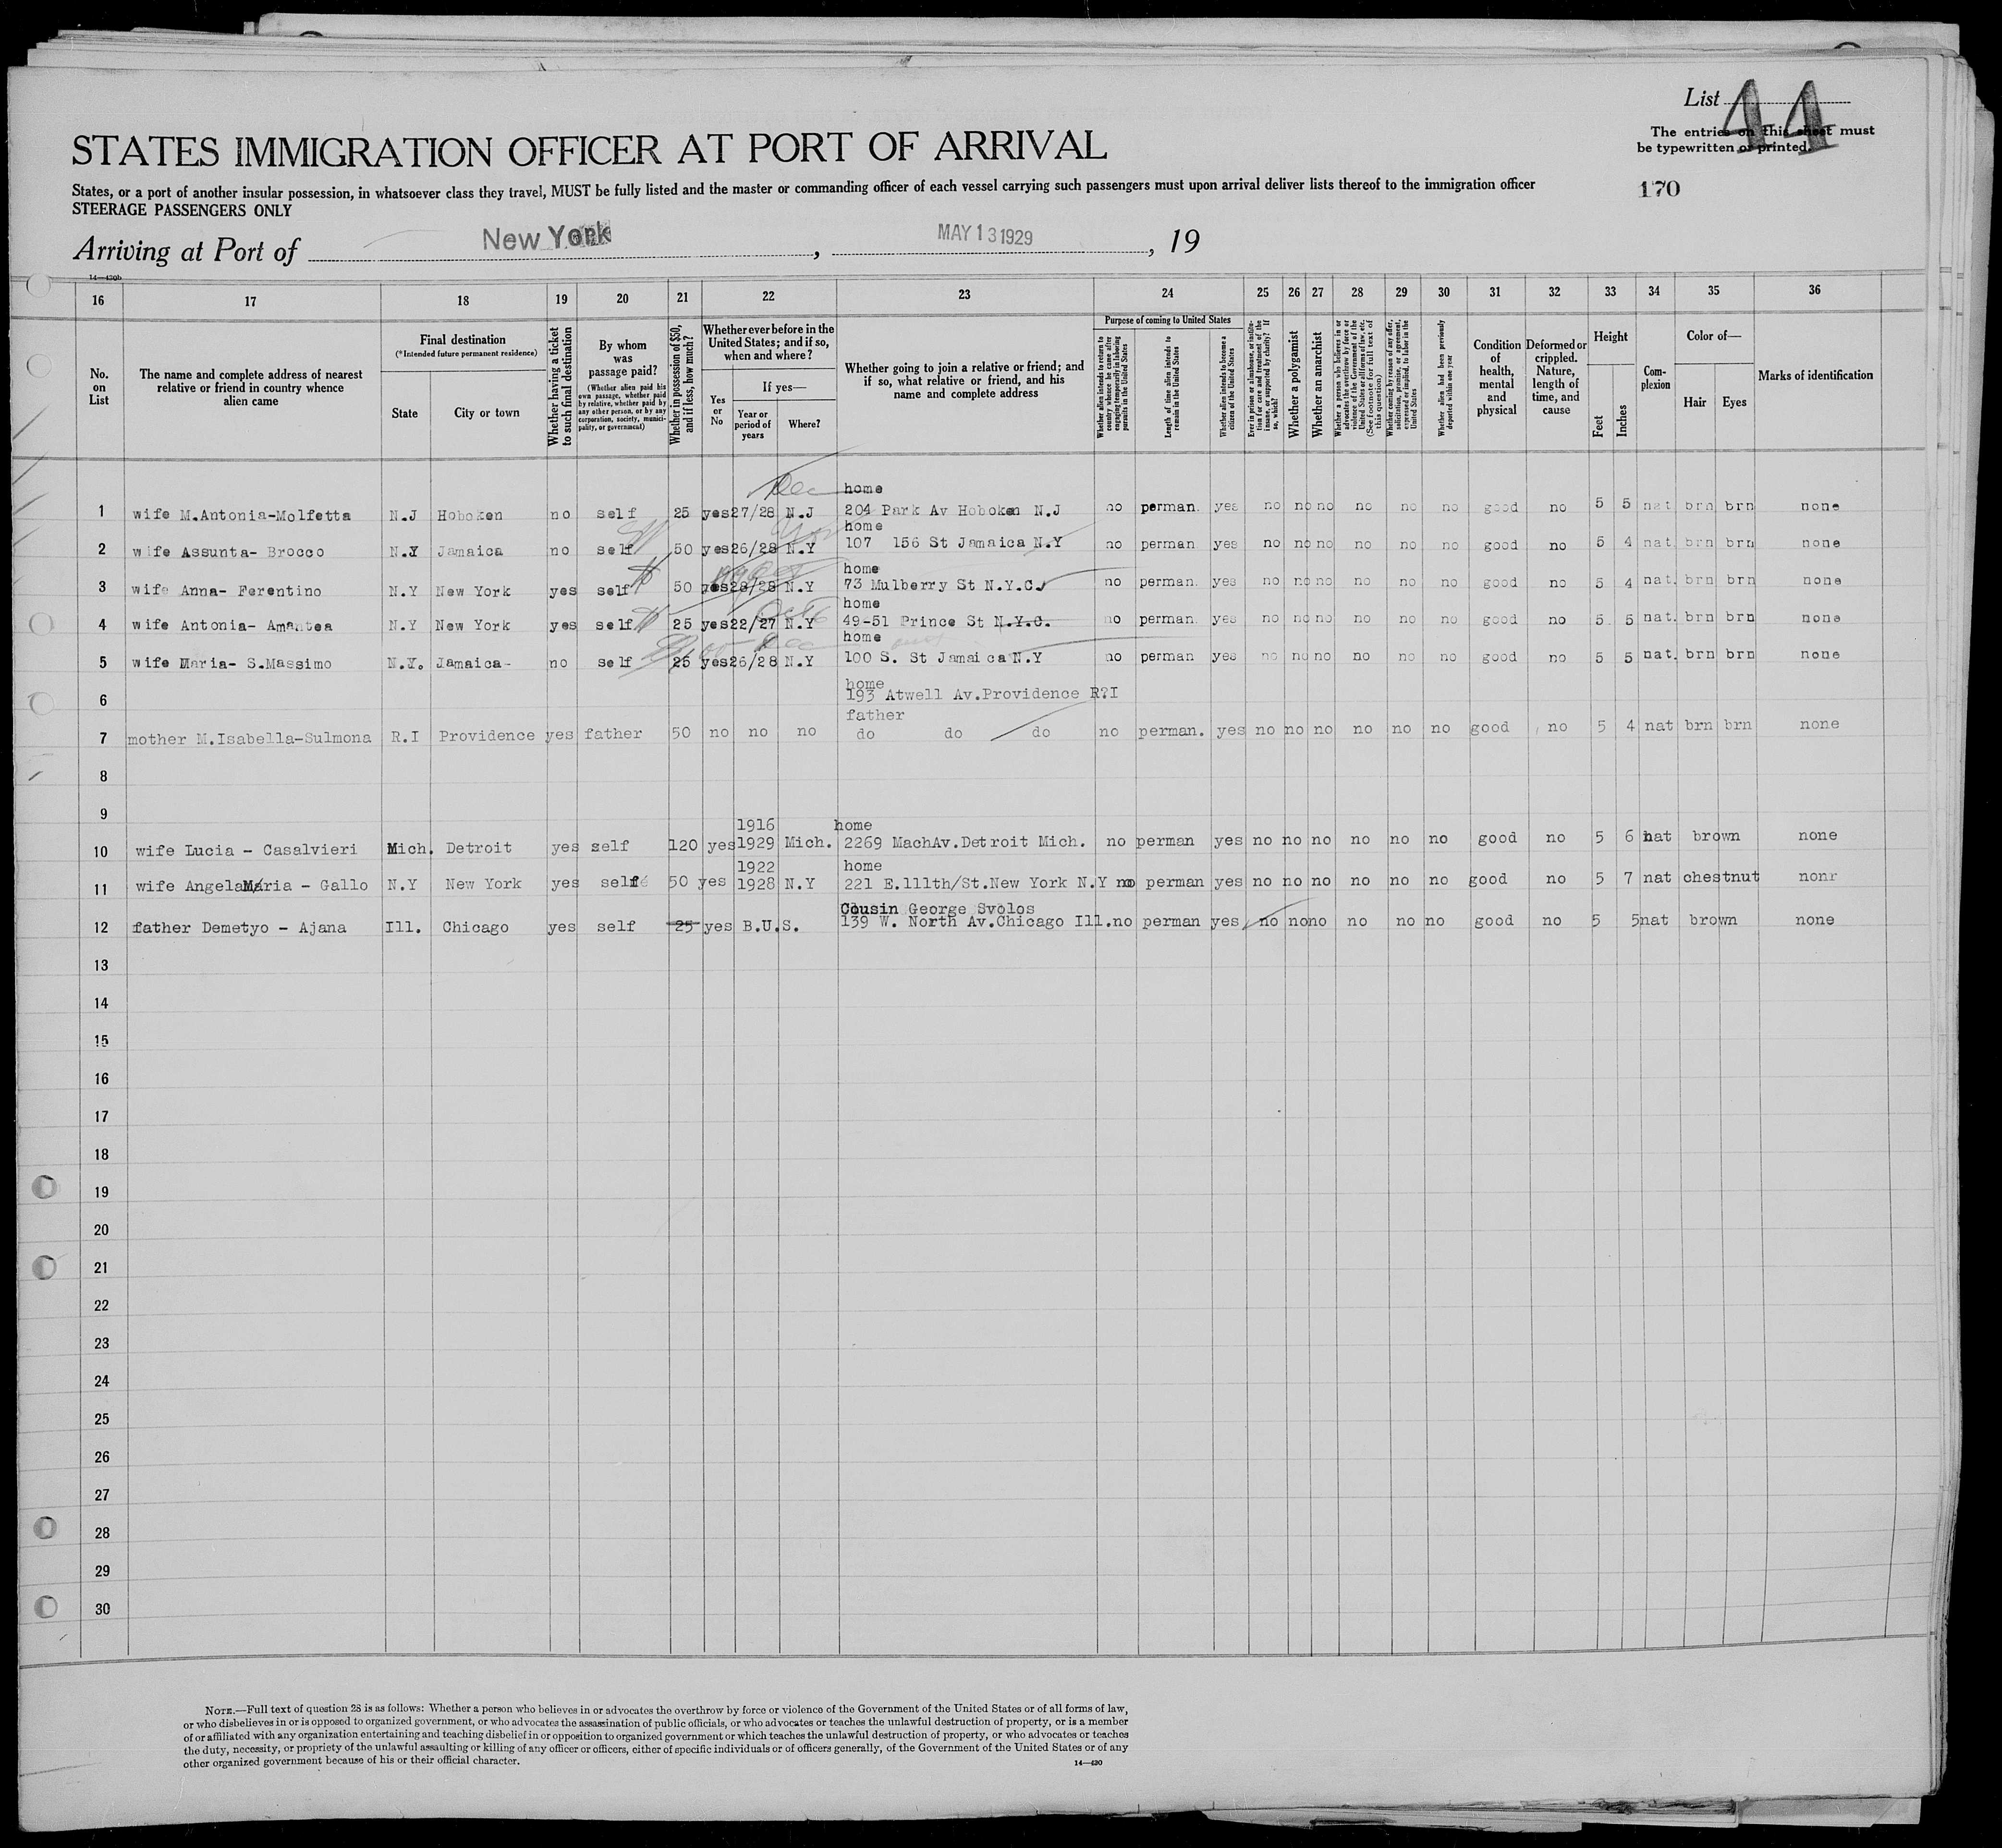 List 44
The entries on this sheet must
be typewritten or printed.
170
STATES IMMIGRATION OFFICER AT PORT OF ARRIVAL
States, or a port of another insular possession, in whatsoever class they travel, MUST be fully listed and the master or commanding officer of each vessel carrying such passengers must upon arrival deliver lists thereof to the immigration officer
STEERAGE PASSENGERS ONLY
Arriving at Port of New York, MAY 13 1929, 19
14—430b
16 17 18 19 20 21 22 23 24 25 26 27 28 29 30 31 32 33 34 35 36
No. on List
The name and complete address of nearest relative or friend in country whence alien came
Final destination
(*Intended future permanent residence)
State City or town
Whether having a ticket to such final destination
By whom was passage paid?
(Whether alien paid his own passage, whether paid by relative, whether paid by any other person, or by any corporation, society, municipality, or government)
Whether in possession of $50, and if less, how much?
Whether ever before in the United States; and if so, when and where?
Yes or No
If yes—
Year or period of years Where?
Whether going to join a relative or friend; and if so, what relative or friend, and his name and complete address
Purpose of coming to United States
Whether alien intends to return to country whence he came after engaging temporarily in laboring pursuits in the United States
Length of time alien intends to remain in the United States
Whether alien intends to become a citizen of the United States
Ever in prison or almshouse, or institution for care and treatment of the insane, or supported by charity? If so, which?
Whether a polygamist
Whether an anarchist
Whether a person who believes in or advocates the overthrow by force or violence of the Government of the United States or all forms of law, etc. (See footnote for full text of this question)
Whether coming by reason of any offer, solicitation, promise, or agreement, expressed or implied, to labor in the United States
Whether alien had been previously deported within one year
Condition of health, mental and physical
Deformed or crippled. Nature, length of time, and cause
Height
Feet Inches
Complexion
Color of—
Hair Eyes
Marks of identification
Dec home
1 wife M.Antonia-Molfetta N.J Hoboken no self 25 yes 27/28 N.J 204 Park Av Hoboken N.J no perman. yes no no no no no no good no 5 5 nat brn brn none
home
2 wife Assunta- Brocco N.Y Jamaica no self 50 yes 26/28 N.Y 107 156 St Jamaica N.Y no perman yes no no no no no no good no 5 4 nat. brn brn none
home
3 wife Anna- Ferentino N.Y New York yes self 50 yes 28/28 N.Y 73 Mulberry St N.Y.C. no perman. yes no no no no no no good no 5 4 nat. brn brn none
home
4 wife Antonia- Amantea N.Y New York yes self 25 yes 22/27 N.Y 49-51 Prince St N.Y.C. no perman. yes no no no no no no good no 5 5 nat. brn brn none
Dec home
5 wife Maria- S.Massimo N.Y. Jamaica- no self 25 yes 26/28 N.Y 100 S. St Jamaica N.Y no perman yes no no no no no no good no 5 5 nat. brn brn none
home
6 193 Atwell Av.Providence R?I
father
7 mother M.Isabella-Sulmona R.I Providence yes father 50 no no no do do do no perman. yes no no no no no no good no 5 4 nat brn brn none
8
9
1916 home
10 wife Lucia - Casalvieri Mich. Detroit yes self 120 yes 1929 Mich. 2269 MachAv.Detroit Mich. no perman yes no no no no no no good no 5 6 nat brown none
1922 home
11 wife AngelaMaria - Gallo N.Y New York yes self 50 yes 1928 N.Y 221 E.111th/St.New York N.Y no perman yes no no no no no no good no 5 7 nat chestnut nonr
Cousin George Svolos
12 father Demetyo - Ajana Ill. Chicago yes self 25 yes B.U.S. 139 W. North Av.Chicago Ill. no perman yes no no no no no no good no 5 5 nat brown none
13
14
15
16
17
18
19
20
21
22
23
24
25
26
27
28
29
30
NOTE.—Full text of question 28 is as follows: Whether a person who believes in or advocates the overthrow by force or violence of the Government of the United States or of all forms of law,
or who disbelieves in or is opposed to organized government, or who advocates the assassination of public officials, or who advocates or teaches the unlawful destruction of property, or is a member
of or affiliated with any organization entertaining and teaching disbelief in or opposition to organized government or which teaches the unlawful destruction of property, or who advocates or teaches
the duty, necessity, or propriety of the unlawful assaulting or killing of any officer or officers, either of specific individuals or of officers generally, of the Government of the United States or of any
other organized government because of his or their official character.
14—430